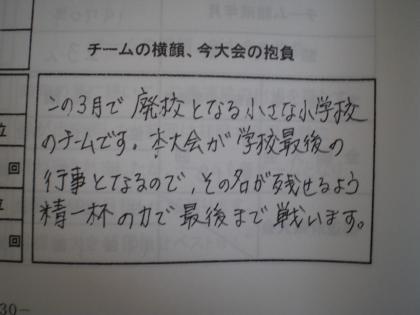 チームの横顔、今大会の抱負
この3月で廃校となる小さな小学校
のチームです。本大会が学校最後の
行事となるので、その名が残せるよう
精一杯の力で最後まで戦います。
位
回
位
回
30−